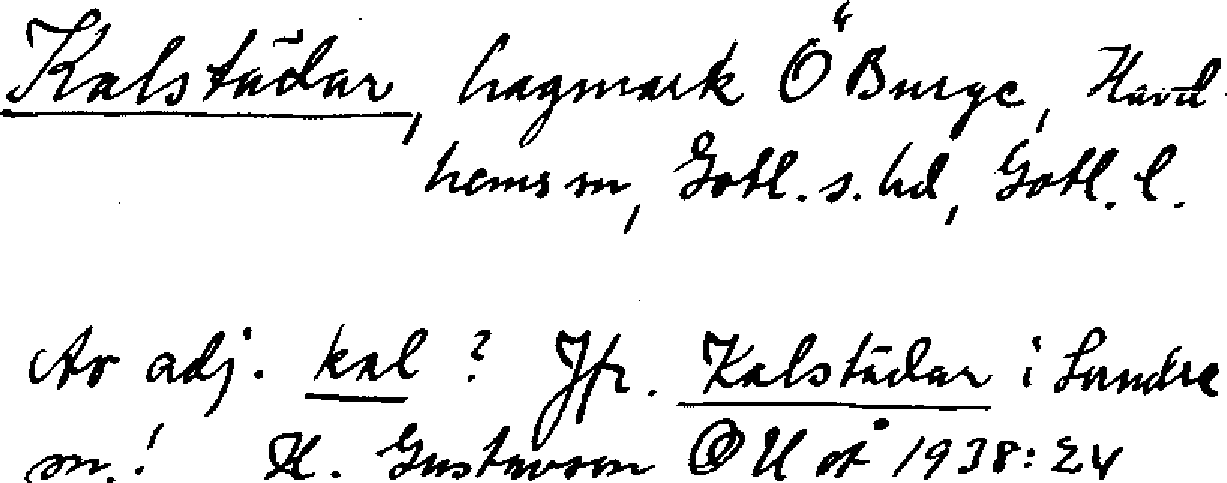 Kalstädar, hagmark Ö Burge, Havd-
hems sn, Gotl. s. hd, Gotl. l.
Av adj. kal? Jfr. Kalstädar i Sundre
sn.! H. Gustavson OUÅ 1938: 24